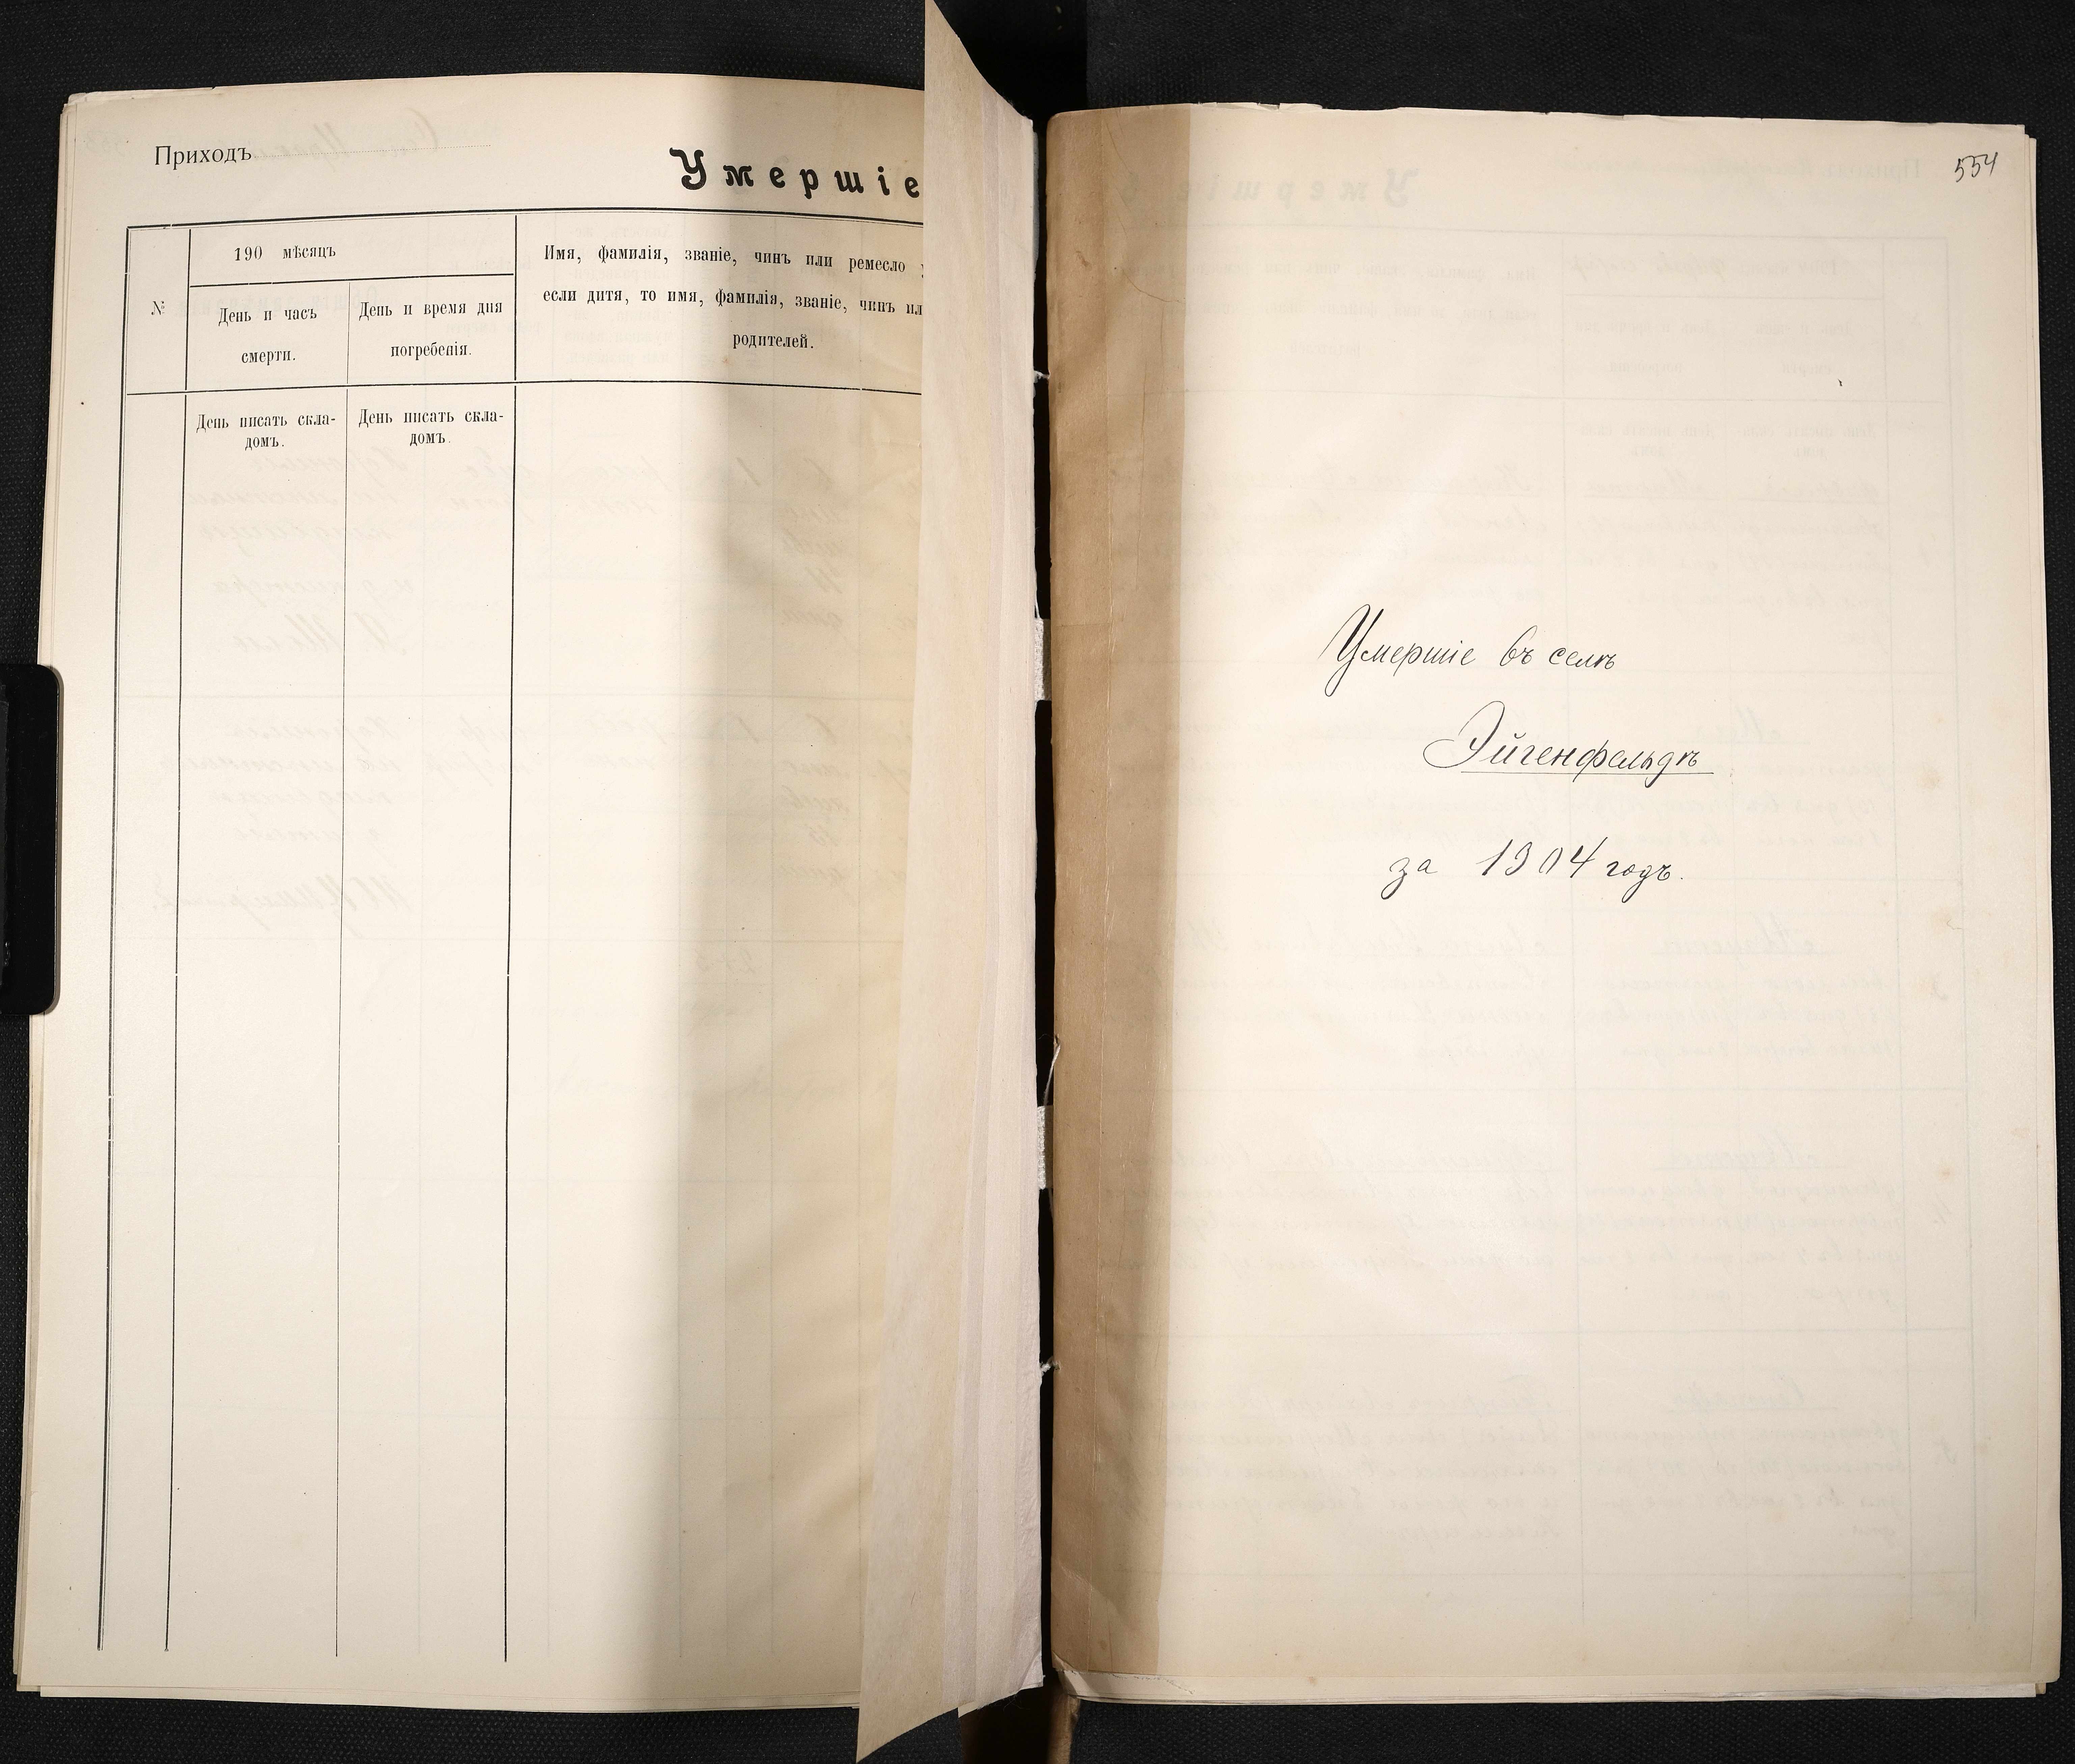 Приходъ
Умершіе
№
190 мѣсяцъ
День и часъ
смерти.
День и время дня
погребенія.
Имя, фамилія, званіе, чинъ или ремесло
если дитя, то имя, фамилія, званіе, чинъ ил
родителей.
День писать скла-
домъ.
День писать скла-
домъ.
554
Умершіе въ селѣ
Эйгенфельдѣ
за 1904 годъ.